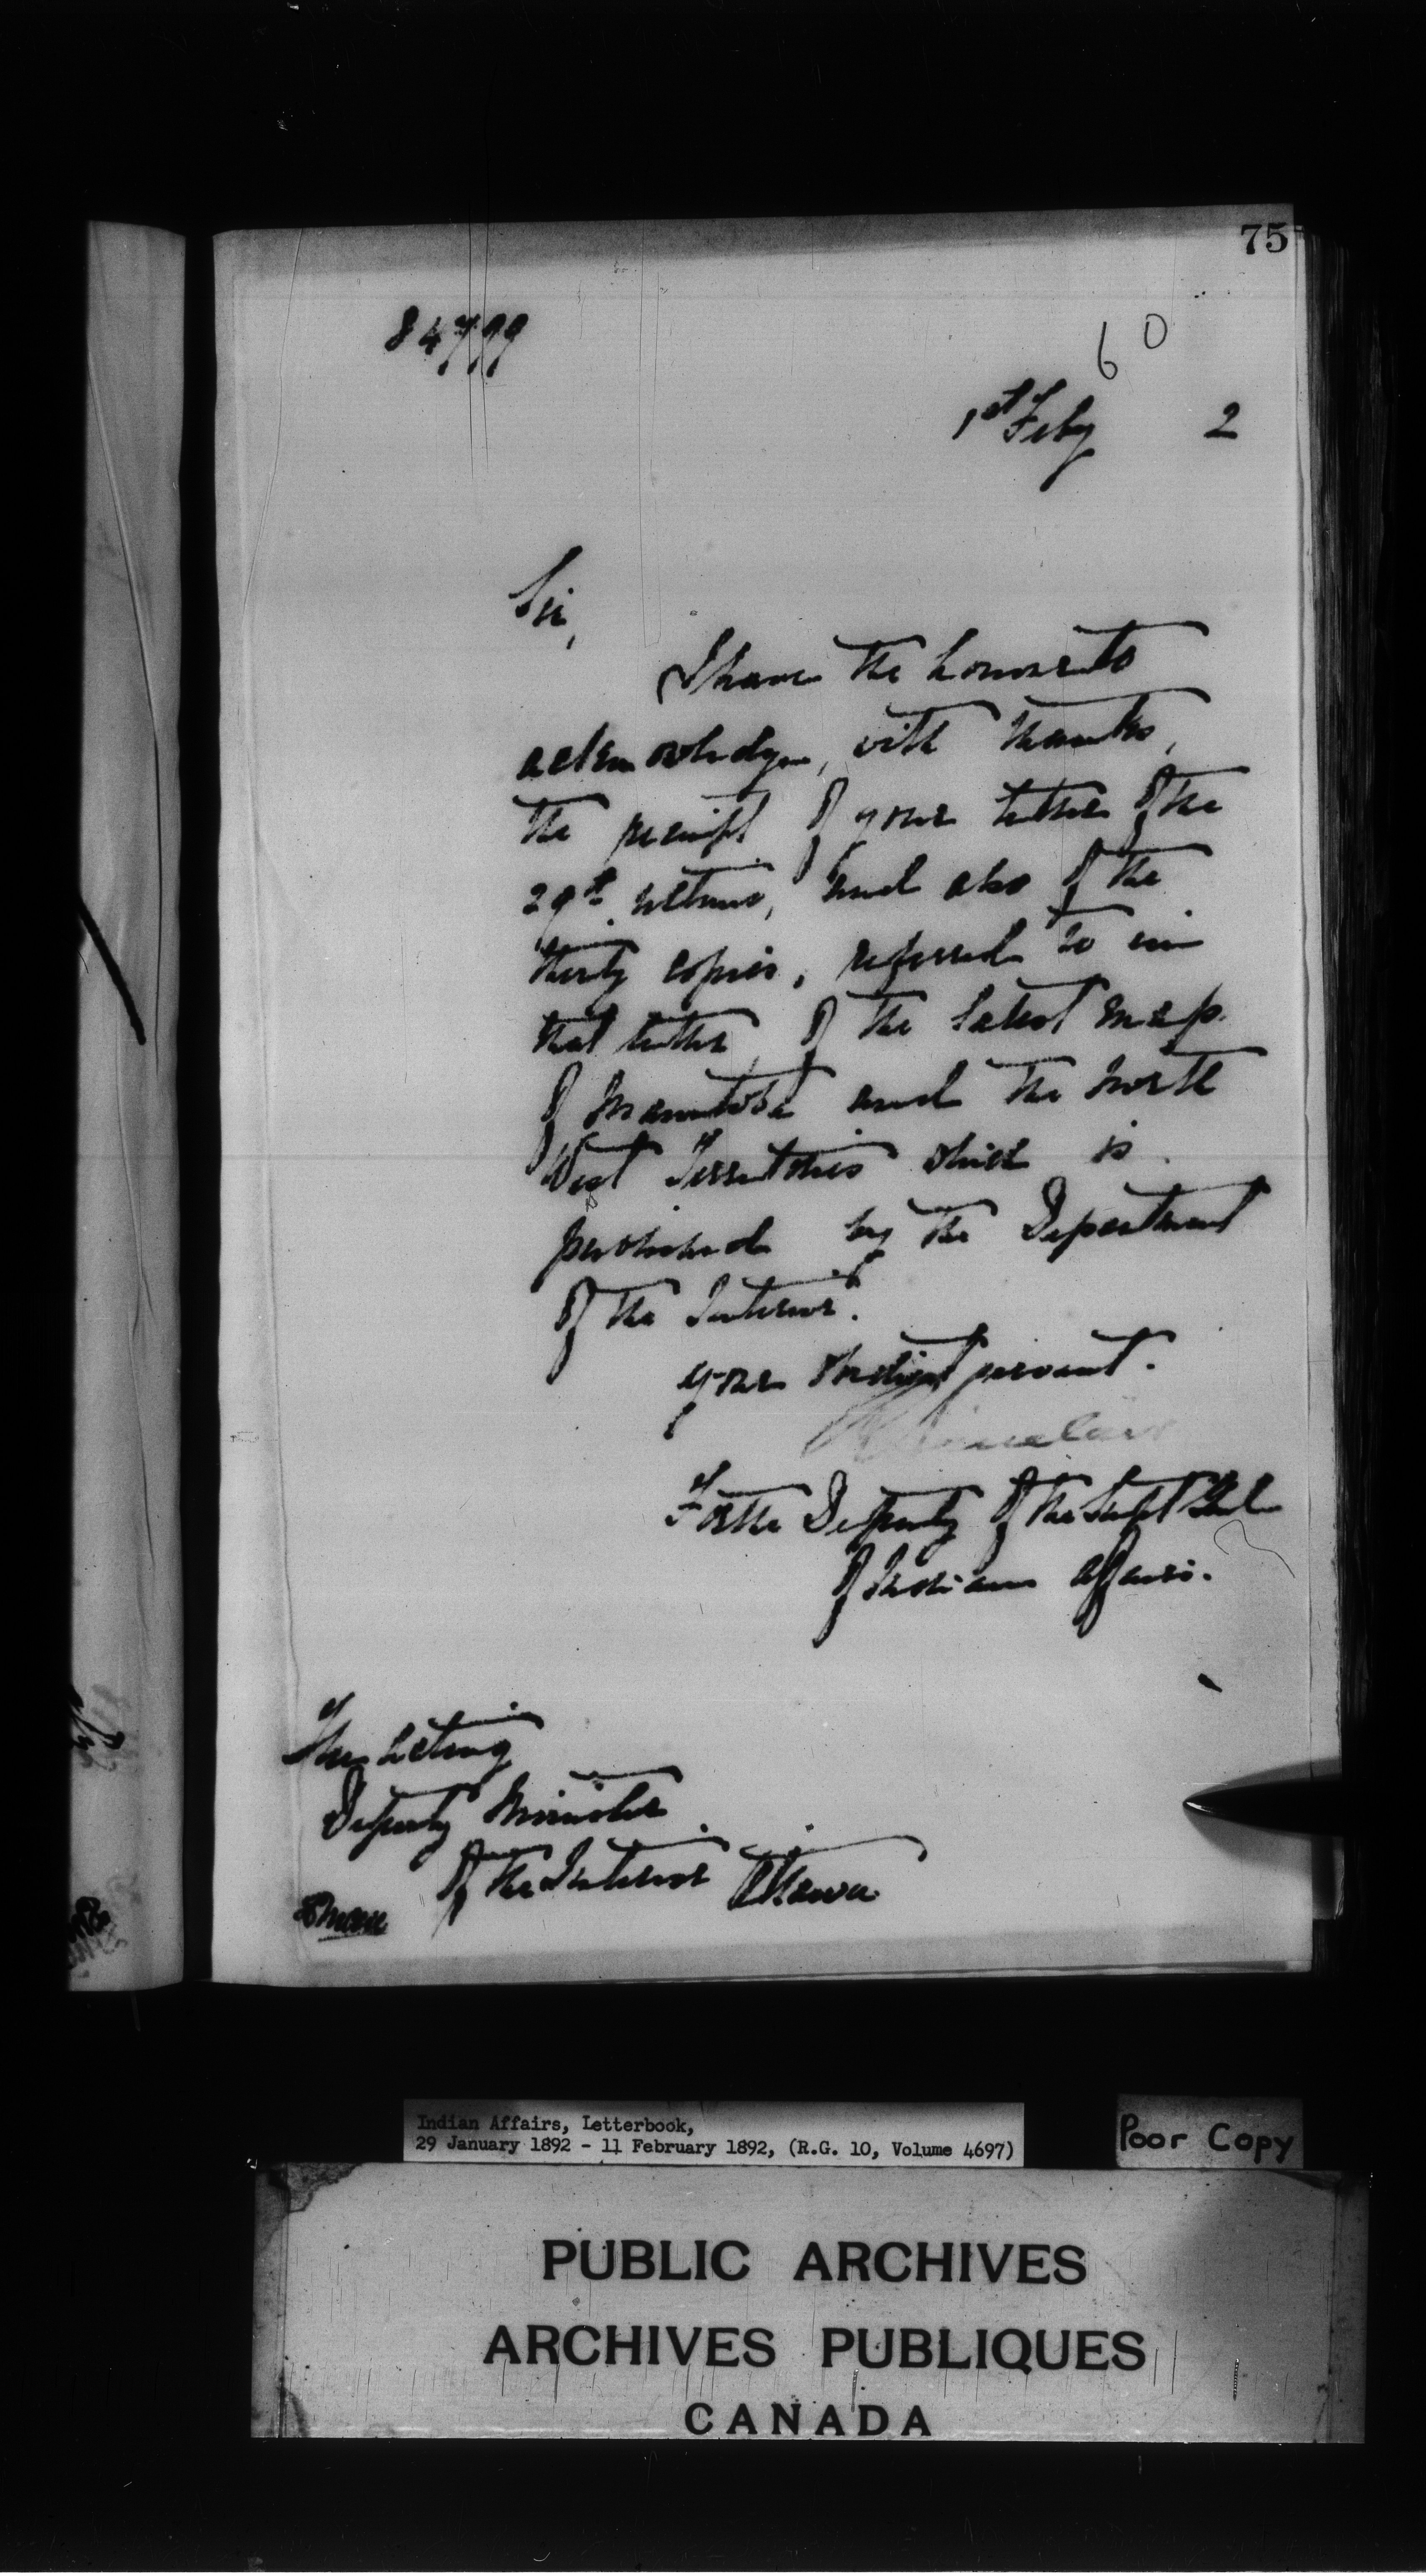 75
84799
60
1st Feby 2
Sir,
I have the honour to
acknowledge, with thanks,
the receipt of your letter of the
29th ultimo, and also of the
thirty copies, referred to in
that letter, of the latest map
of Manitoba and the North
West Territories which is
published by the Department
of the Interior.
Your obedient servant.
Sinclair
For the Deputy of the Supt Genl
of Indian Affairs.
The Acting
Deputy Minister
of the Interior Ottawa
Indian Affairs, Letterbook,
29 January 1892 - 11 February 1892, (R.G. 10, Volume 4697)
Poor Copy
PUBLIC ARCHIVES
ARCHIVES PUBLIQUES
CANADA